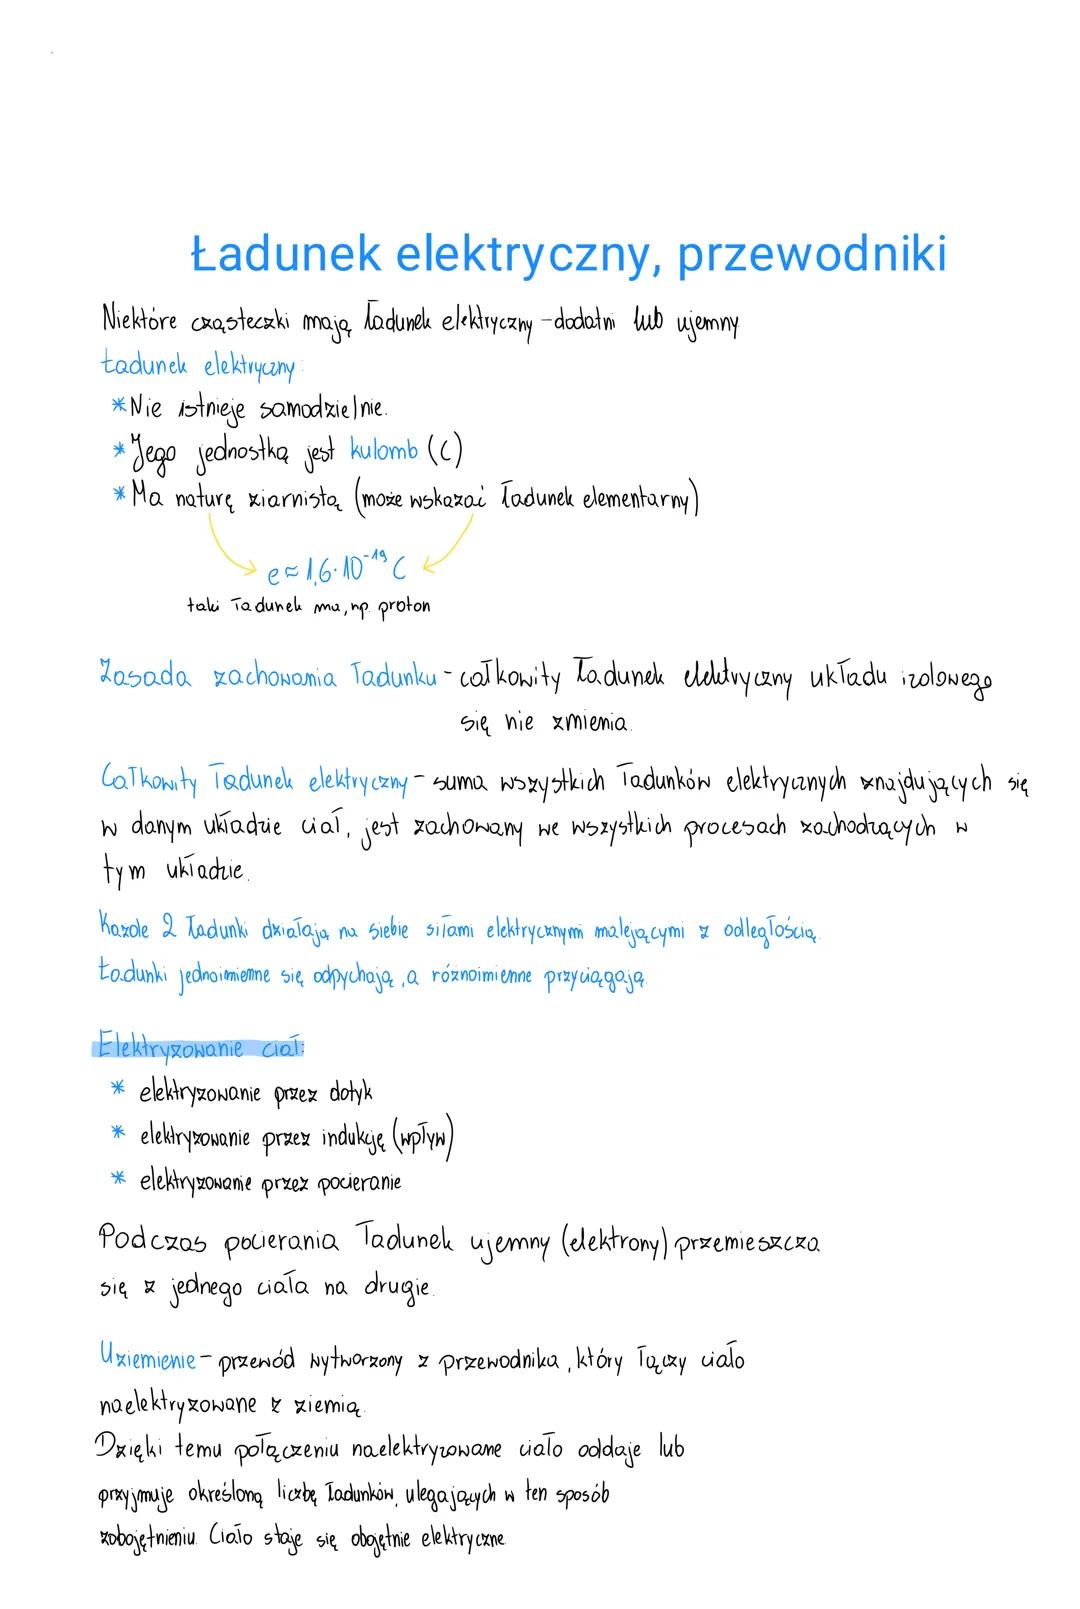 Ładunek elektryczny, przewodniki
Niektóre cząsteczki mają ładunek elektryczny - dodatni lub ujemny
Ładunek elektryczny:
* Nie istnieje samodzielnie.
* Jego jednostką jest kulomb (C)
* Ma naturę ziarnistą (może wskazać ładunek elementarny)
e ≈ 1,6·10⁻¹⁹ C
taki ładunek ma, np. proton
Zasada zachowania ładunku - całkowity ładunek elektryczny układu izolowego
się nie zmienia.
Całkowity ładunek elektryczny - suma wszystkich ładunków elektrycznych znajdujących się
w danym układzie ciał, jest zachowany we wszystkich procesach zachodzących w
tym układzie.
Każde 2 ładunki działają na siebie siłami elektrycznymi malejącymi z odległością.
Ładunki jednoimienne się odpychają, a różnoimienne przyciągają
Elektryzowanie ciał:
* elektryzowanie przez dotyk
* elektryzowanie przez indukcję (wpływ)
* elektryzowanie przez pocieranie
Podczas pocierania ładunek ujemny (elektrony) przemieszcza
się z jednego ciała na drugie.
Uziemienie - przewód wytworzony z przewodnika, który łączy ciało
naelektryzowane z ziemią.
Dzięki temu połączeniu naelektryzowane ciało oddaje lub
przyjmuje określoną liczbę ładunków, ulegających w ten sposób
zobojętnieniu. Ciało staje się obojętnie elektryczne.